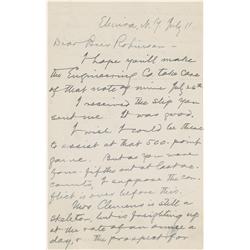 Elmira, N.Y. July 11
Dear Bro. Robinson—
I hope you'll make
the Engineering Co take care
of that note of mine July 26th
I received the slip you
sent me. It was good.
I wish I could be there
to assist at that 500-point
game. But as you were
four-fifths out at last ac-
counts, I suppose the con-
flict is over before this.
Mrs Clemens is still a
skeleton, but is freighting up
at the rate of an ounce a
day, & the prospect for